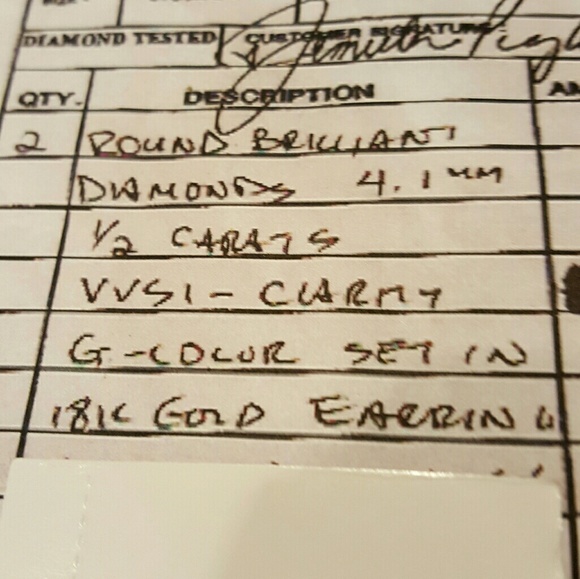 DIAMOND TESTED CUSTOMER SIGNATURE
QTY. DESCRIPTION AM
2 ROUND BRILLIANT
DIAMONDS 4.1MM
1/2 CARATS
VVS1 - CLARITY
G-COLOR SET IN
18K GOLD EARRING